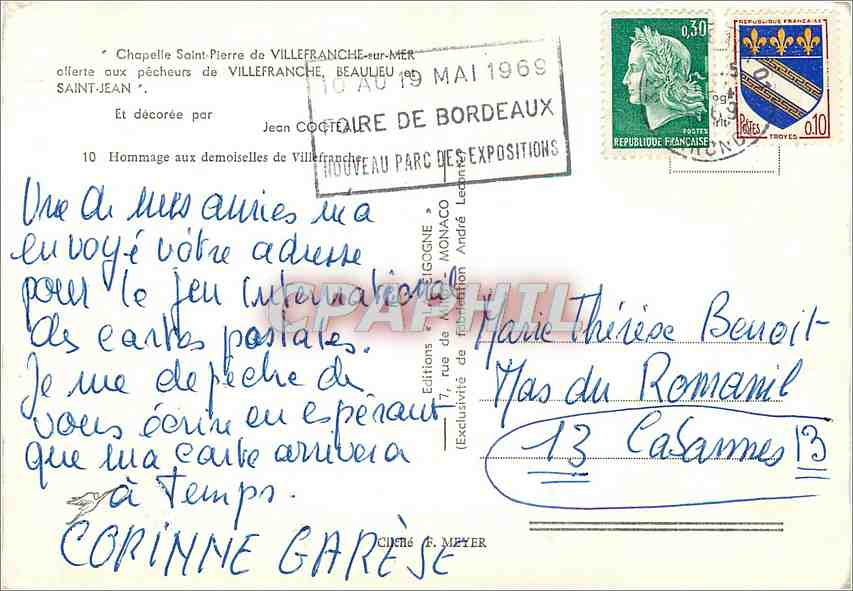 " Chapelle Saint-Pierre de VILLEFRANCHE-sur-MER
offerte aux pêcheurs de VILLEFRANCHE, BEAULIEU et
SAINT-JEAN ".
Et décorée par
Jean COCTEAU
10 Hommage aux demoiselles de Villefranche
10 AU 19 MAI 1969
FOIRE DE BORDEAUX
NOUVEAU PARC DES EXPOSITIONS
0,30
POSTES
REPUBLIQUE FRANÇAISE
REPUBLIQUE FRANÇAISE
POSTES
0,10
TROYES
Une de mes amies m'a
envoyé vôtre adresse
pour le jeu international
des cartes postales.
Je me depêche de
vous écrire en espérant
que ma carte arrivera
à temps.
CORINNE GARÈSE
Editions
MONACO
7, rue de
(Exclusivité de fabrication André Leconte
CPAPHIL
Marie Thérèse Benoit
Mas du Romanil
13 Cabannes 13
Cliché F. MEYER